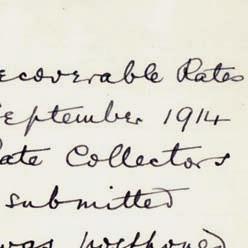 ecoverable Rates
eptember 1914
ate Collectors
submitted
was postponed